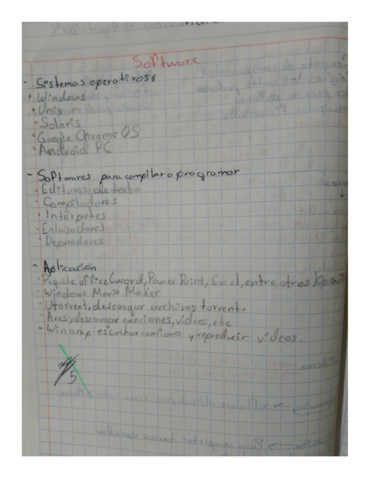 Software
- Sistemas operativos:
• Windows
• Unix
• Solaris
• Google Chrome OS
• Android PC
- Softwares para compilar o programar
• Editores de texto
• Compiladores
• Intérpretes
• Enlazadores
• Depuradores
- Aplicación
• Paq. de office (word, Power Point, Excel, entre otras
• Windows Movie Maker
• Utorrent, descargar archivos torrent.
• Ares, descargar canciones, videos, etc
• Winamp, escuchar canciones y reproducir videos.
5